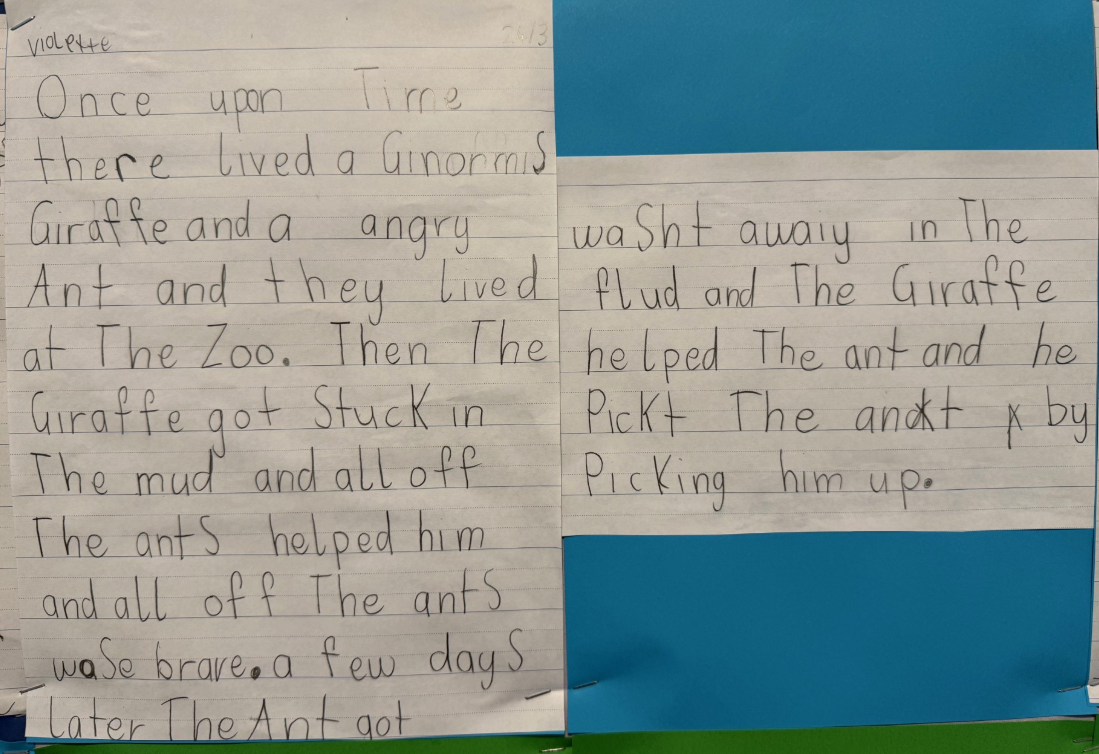 Violette 26/3
Once upon Time
there lived a Ginormis
Giraffe and a angry
Ant and they lived
at The Zoo. Then The
Giraffe got Stuck in
The mud and all off
The antS helped him
and all off The antS
waSe brave. a few dayS
later The Ant got
waSht awaiy in The
flud and The Giraffe
helped The ant and he
Pickt The ant by
PicKing him up.